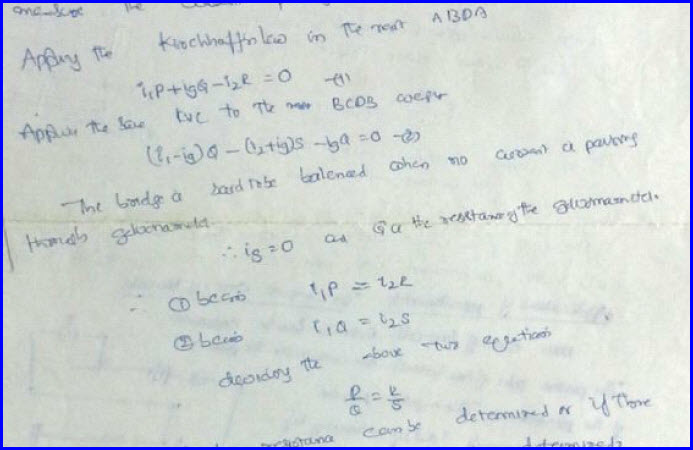 the
Applying the Kirchhoff's law in the mesh ABDA
i₁P + igG - i₂R = 0 -(1)
Apply the same KVL to the mesh BCDB
(i₁-ig)Q - (i₂+ig)S - igG = 0 -(2)
The bridge is said to be balanced when no current is passing
through galvanometer.
∴ ig = 0 as G is the resistance of the galvanometer.
∴ ① becomes i₁P = i₂R
② becomes i₁Q = i₂S
dividing the above two equations
P/Q = R/S
resistance can be determined or if three
determined